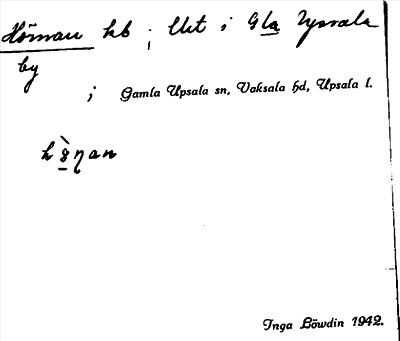 Hörnan hb ; Utt i Gla Uppsala
by
; Gamla Upsala sn, Vaksala hd, Upsala l.
Inga Löwdin 1942.